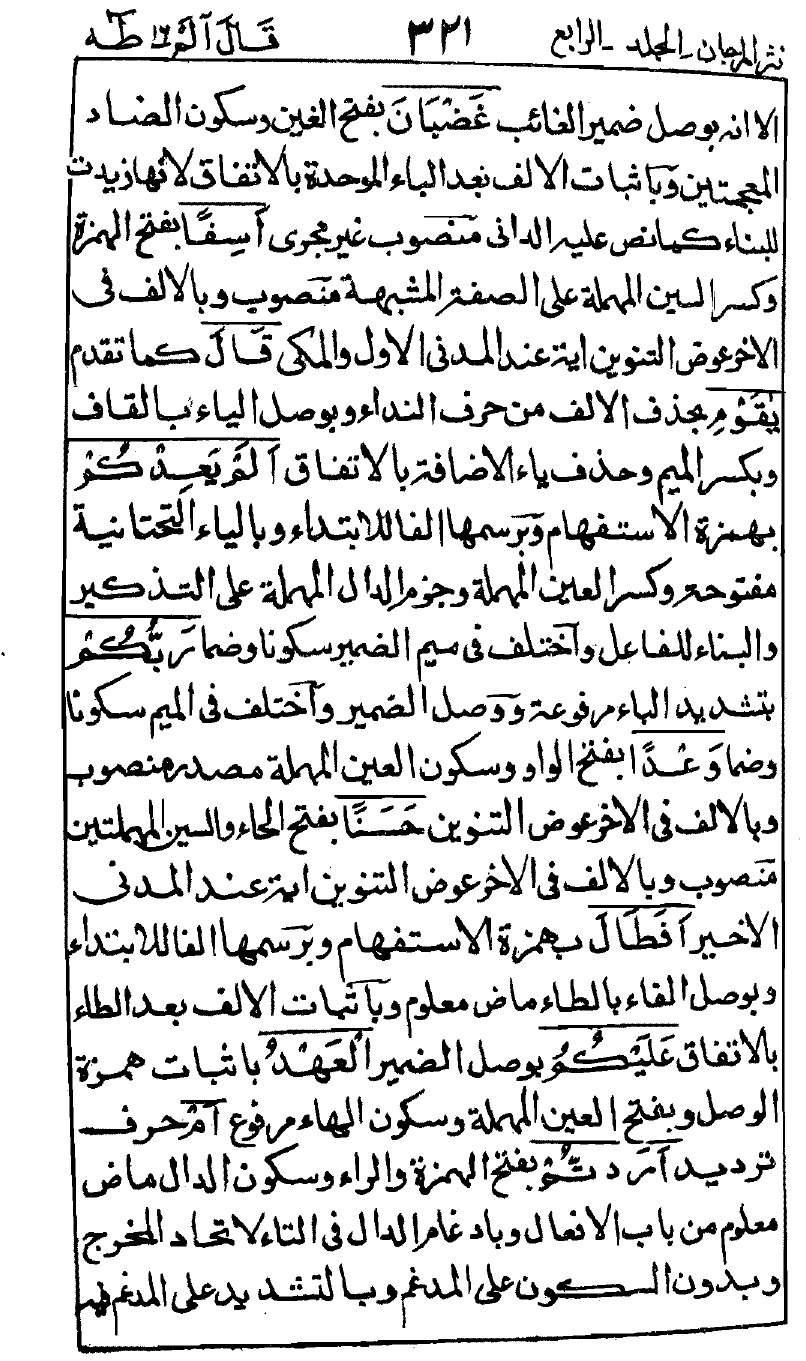 نثر المرجان - المجلد - الرابع ٣٢١ قَالَ آلَمْ ١٦ طٰهٰ
الا انه بوصل ضمير الغائب غَضْبَانَ بفتح الغين وسكون الضاد
المعجمتين وَباثبات الالف بعد الباء الموحدة بالاتفاق لانها زيدت
للبناء كما نص عليه الدانى منصوب غير مجرى أَسِفًا بفتح الهمزة
وكسر السين المهملة على الصفة المشبهة منصوب وبالالف فى
الاخر عوض التنوين اية عند المدنى الاول والمكى قَالَ كما تقدم
يٰقَوْمِ بحذف الالف من حرف النداء وبوصل الياء بالقاف
وبكسر الميم وحذف ياء الاضافة بالاتفاق اَلَمْ يَعِدْكُمْ
بهمزة الاستفهام وَبرسمها الفا للابتداء وبالياء التحتانية
مفتوحة وكسر العين المهملة وجزم الدال المهملة على التذكير
والبناء للفاعل واختلف فى ميم الضمير سكونا وضما رَبُّكُمْ
بتشديد الباء مرفوعة وَوصل الضمير واختلف فى الميم سكونا
وضما وَعْدًا بفتح الواو وسكون العين المهملة مصدر منصوب
وبالالف فى الاخر عوض التنوين حَسَنًا بفتح الحاء والسين المهملتين
منصوب وبالالف فى الاخر عوض التنوين اية عند المدنى
الاخير اَفَطَالَ بهمزة الاستفهام وبرسمها الفا للابتداء
وبوصل الفاء بالطاء ماض معلوم وباثبات الالف بعد الطاء
بالاتفاق عَلَيْكُمُ بوصل الضمير الْعَهْدُ باثبات همزة
الوصل وبفتح العين المهملة وسكون الهاء مرفوع اَمْ حرف
ترديد اَرَدتُّمْ بفتح الهمزة والراء وسكون الدال ماض
معلوم من باب الافعال وبادغام الدال فى التاء لاتحاد المخرج
وبدون السكون على المدغم وبالتشديد على المدغم فيه